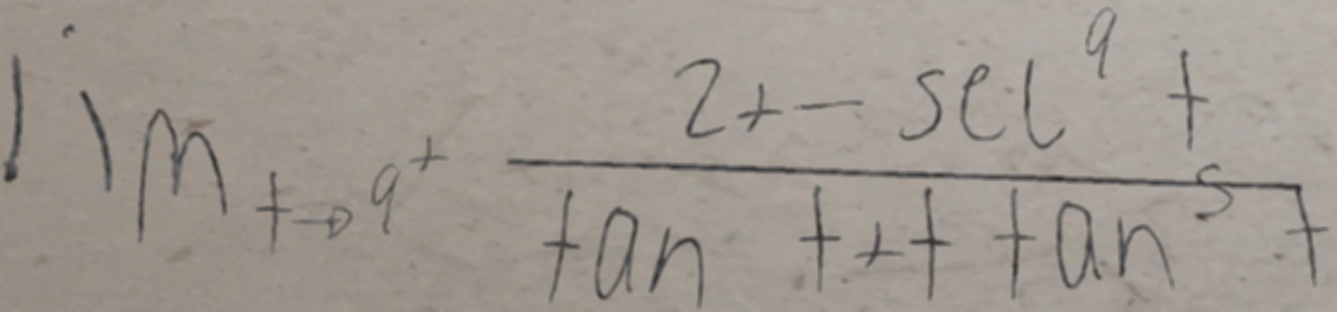 lim_{t→9^+} \frac{2+-sec^9 t}{tan t++ tan^5 t}